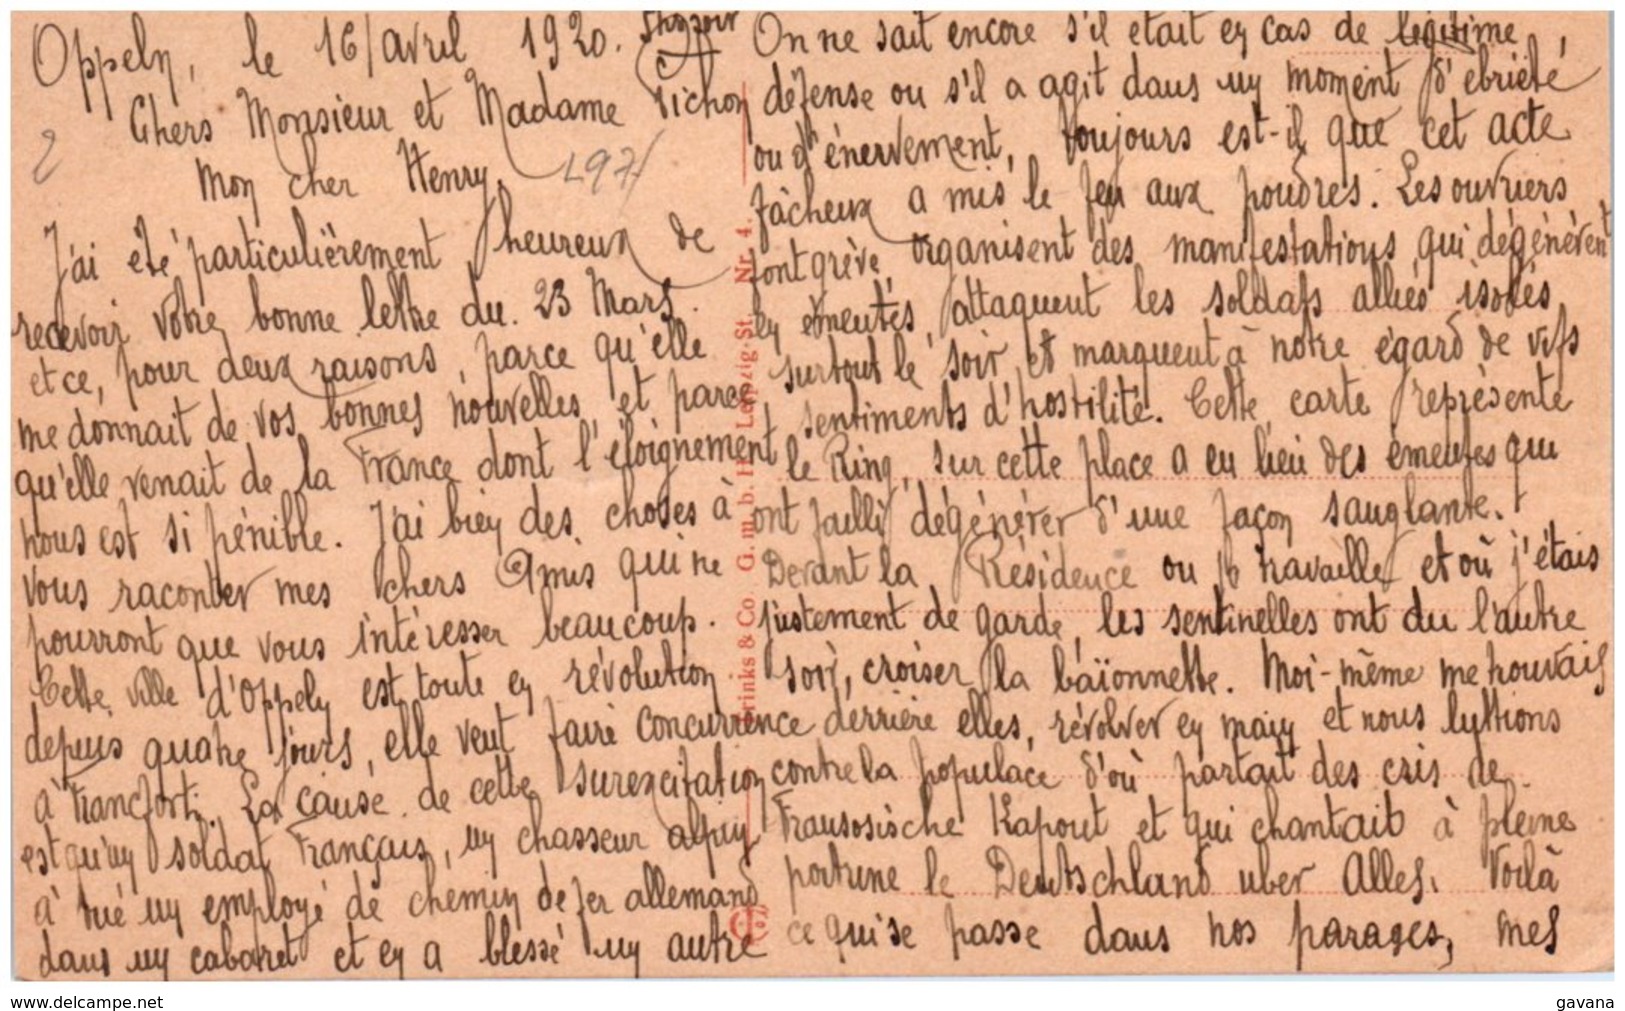 Oppeln, le 16/avril 1920.
Chers Monsieur et Madame Pichon
2
Mon cher Henry,
J'ai été particulièrement heureux de
recevoir votre bonne lettre du 23 Mars.
et ce, pour deux raisons, parce qu'elle
me donnait de vos bonnes nouvelles, et parce
qu'elle venait de la France dont l'éloignement
nous est si pénible. J'ai bien des choses à
vous raconter mes chers Amis qui ne
pourront que vous intéresser beaucoup.
Cette ville d'Oppeln est toute en révolution
depuis quatre jours, elle veut faire concurrence
à Francfort. La cause de cette surexcitation
est qu'un soldat Français, un chasseur alpin
à tué un employé de chemin de fer allemand
dans un cabaret et en a blessé un autre
On ne sait encore s'il était en cas de légitime
défense ou s'il a agit dans un moment d'ebriété
ou d'énervement, toujours est-il que cet acte
fâcheux a mis le feu aux poudres. Les ouvriers
font grève, organisent des manifestations qui dégénèrent
en émeutes, attaquent les soldats alliés isolés
surtout le soir et marquent à notre égard de vifs
sentiments d'hostilité. Cette carte représente
le Ring, sur cette place a eu lieu des émeutes qui
ont failli dégénérer d'une façon sanglante.
Devant la Résidence ou je travaille et où j'étais
justement de garde, les sentinelles ont du l'autre
soir, croiser la baïonnette. Moi-même me trouvais
derrière elles, révolver en main et nous luttions
contre la populace d'où partait des cris de
Fransosische Kapout et qui chantait à pleine
poitrine le Deutschland uber Alles. Voilà
ce qui se passe dans nos parages, mes
G. m. b. H. Leipzig-St. Nr. 4.
www.delcampe.net
gavana